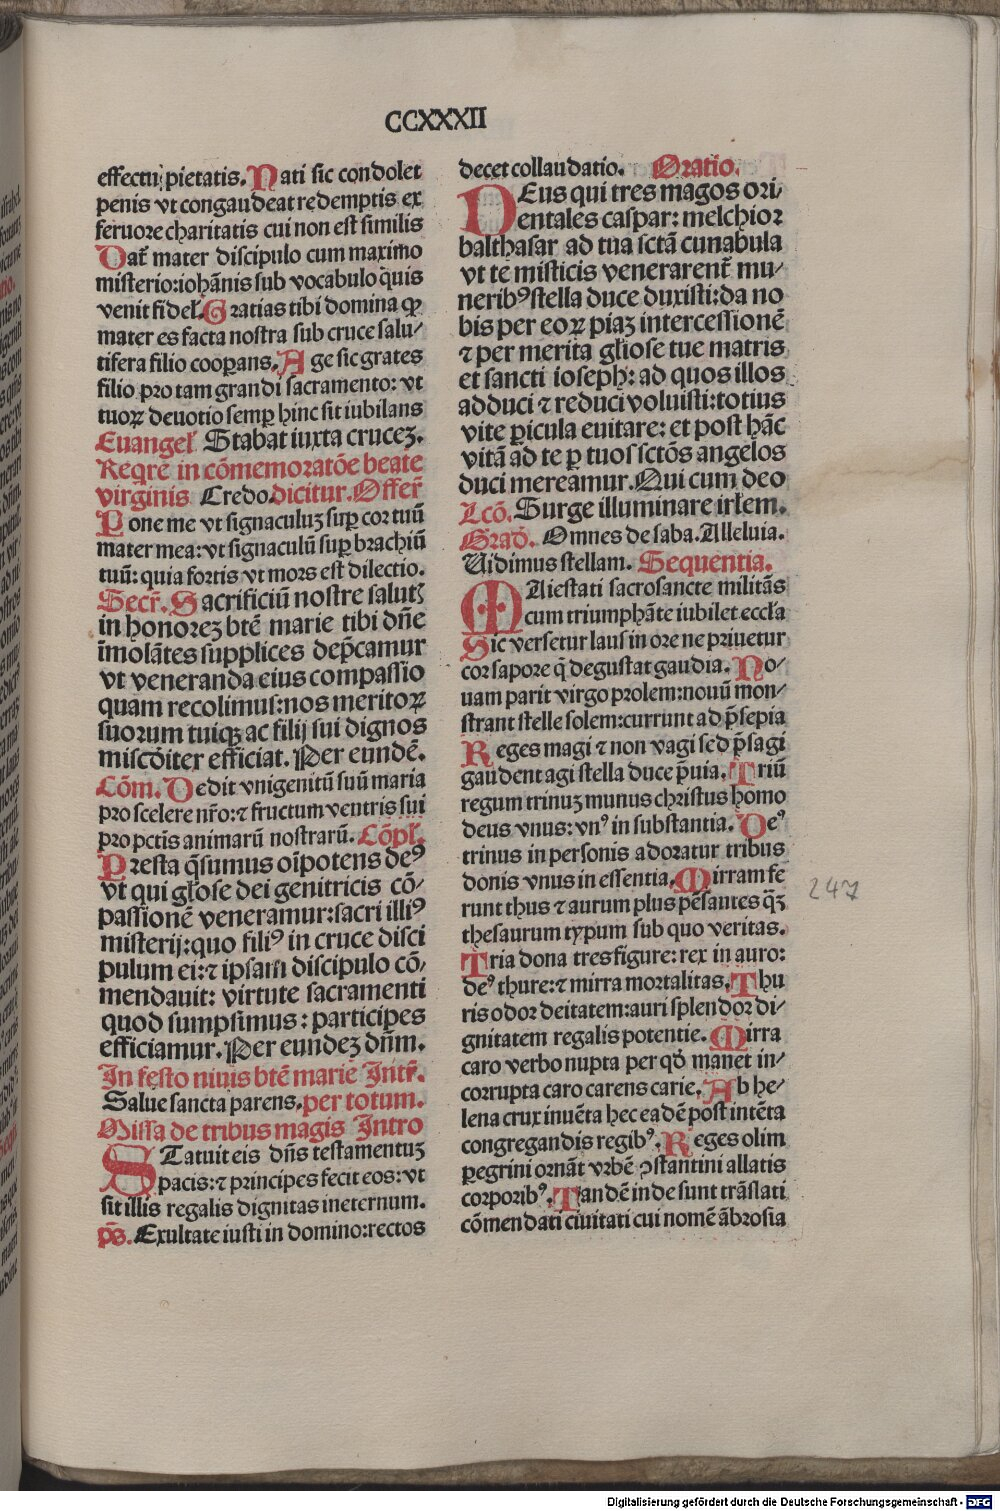 CCXXXII
effectu pietatis. Nati sic condolet
penis vt congaudeat redemptis ex
feruore charitatis cui non est similis
Dat̄ mater discipulo cum maximo
misterio:ioh̄anis sub vocabulo quis
venit fidel̄. Gratias tibi domina qꝫ
mater es facta nostra sub cruce salu/
tifera filio cooꝑans. Age sic grates
filio pro tam grandi sacramento: vt
tuoꝝ deuotio semꝑ hinc sit iubilans
Euangel̄ Stabat iuxta crucez.
Reqr̄e in cōmemoratōe beate
virginis Credo.dicitur.Offer̄
Pone me vt signaculuꝫ suꝑ cor tuū
mater mea: vt signaculū suꝑ brachiū
tuū: quia fortis vt mors est dilectio.
Secr̄. Sacrificiū nostre salutꝭ
in honoreꝫ btē marie tibi dn̄e
īmolātes supplices dep̄camur
vt veneranda eius compassio
quam recolimus: nos meritoꝝ
suorum tuiqꝫ ac filij sui dignos
misc̄diter efficiat. Per eundē.
Cōm. Dedit vnigenitū suū maria
pro scelere nr̄o: ⁊ fructum ventris sui
pro pctis animarū nostrarū. Cōpl̄.
Presta q̄sumus oīpotens deꝰ
vt qui gl̄ose dei genitricis cō/
passionē veneramur:sacri illiꝰ
misterij:quo filiꝰ in cruce disci
pulum ei: ⁊ ipsam discipulo cō/
mendauit: virtute sacramenti
quod sumpsimus : participes
efficiamur. Per eundeꝫ dn̄m.
In festo niuis btē marie Intr̄.
Salue sancta parens. per totum.
Missa de tribus magis Intro
STatuit eis dn̄s testamentuꝫ
pacis: ⁊ principes fecit eos: vt
sit illis regalis dignitas ineternum.
pš. Exultate iusti in domino:rectos
decet collaudatio. Oratio.
DEus qui tres magos ori/
entales caspar: melchior
balthasar ad tua sctā cunabula
vt te misticis venerarent̄ mu/
neribꝰ stella duce duxisti: da no
bis per eoꝝ piaꝫ intercessionē
⁊ per merita gl̄iose tue matris
et sancti ioseph: ad quos illos
adduci ⁊ reduci voluisti: totius
vite ꝑicula euitare: et post hāc
vitā ad te ꝑ tuos sctōs angelos
duci mereamur. Qui cum deo
Lcō. Surge illuminare irl̄em.
Grad̄. Omnes de saba. Alleluia.
Uidimus stellam. Sequentia.
MAiestati sacrosancte militās
cum triumphāte iubilet eccl̄a
Sic versetur laus in ore ne priuetur
cor sapore q̄ degustat gaudia. No/
uam parit virgo prolem: nouū mon/
strant stelle solem: currunt ad p̄sepia
Reges magi ⁊ non vagi sed p̄sagi
gaudent agi stella duce p̄uia. Triū
regum trinuꝫ munus christus homo
deus vnus: vnꝰ in substantia. Deꝰ
trinus in personis adoratur tribus
donis vnus in essentia. Mirram fe
runt thus ⁊ aurum plus pēsantes q̄ꝫ
thesaurum typum sub quo veritas.
Tria dona tres figure: rex in auro:
deꝰ thure: ⁊ mirra mortalitas. Thu
ris odor deitatem: auri splendor di/
gnitatem regalis potentie. Mirra
caro verbo nupta per qđ manet in/
corrupta caro carens carie. Ab he/
lena crux inuēta hec eadē post intēta
congregandis regibꝰ. Reges olim
ꝑegrini ornāt vrbē ꝯstantini allatis
corporibꝰ. Tandē inde sunt trāslati
cōmendati ciuitati cui nomē ābrosia
247
Digitalisierung gefördert durch die Deutsche Forschungsgemeinschaft - DFG